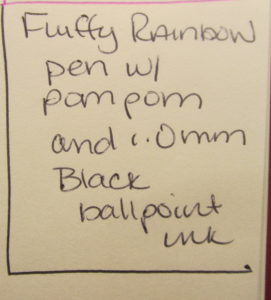 Fluffy Rainbow
pen w/
pom pom
and 1.0mm
Black
ballpoint
ink